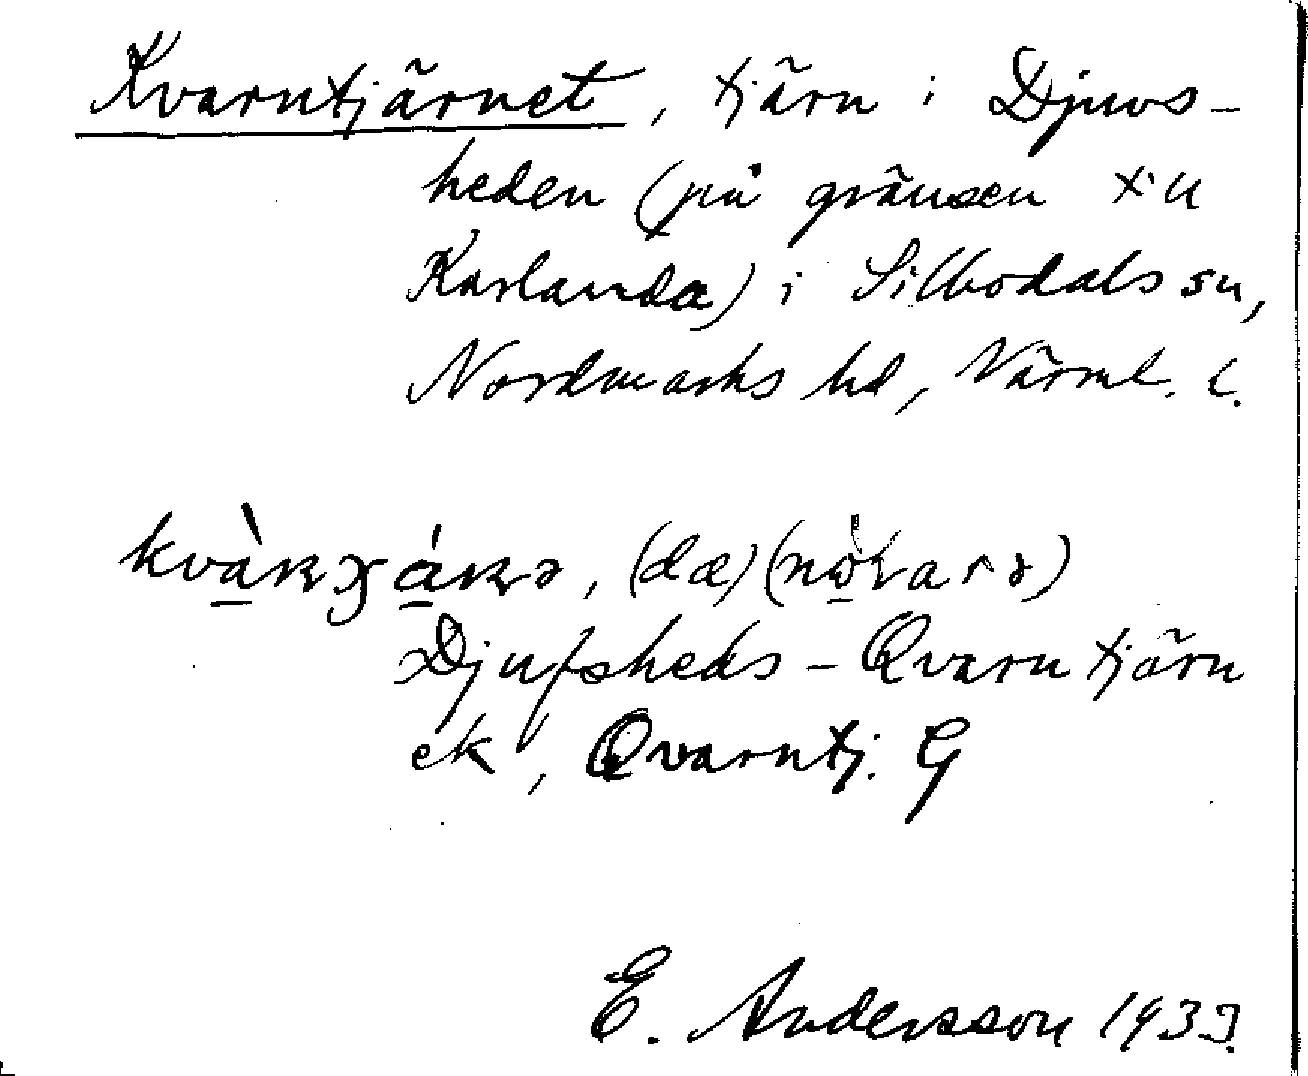 Kvarntjärnet, tjärn i Djuvs-
heden (på gränsen till
Karlanda) i Silbodals sn,
Nordmarks hd, Värml. l.
(dæ)
Djufsheds-Qvarntjärn
ek, Qvarntj. G
E. Andersson 1933.